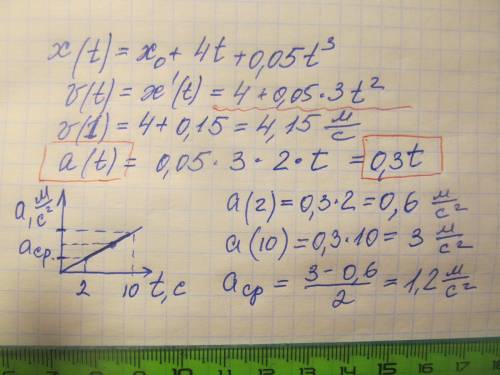 x(t) = x₀ + 4t + 0,05t³
v(t) = x'(t) = 4 + 0,05·3t²
v(1) = 4 + 0,15 = 4,15 м/с
a(t) = 0,05 · 3 · 2 · t = 0,3t
a, м/с²
aср.
2 10 t, с
a(2) = 0,3·2 = 0,6 м/с²
a(10) = 0,3·10 = 3 м/с²
aср = (3 - 0,6)/2 = 1,2 м/с²
6 7 8 9 10 11 12 13 14 15 16 17